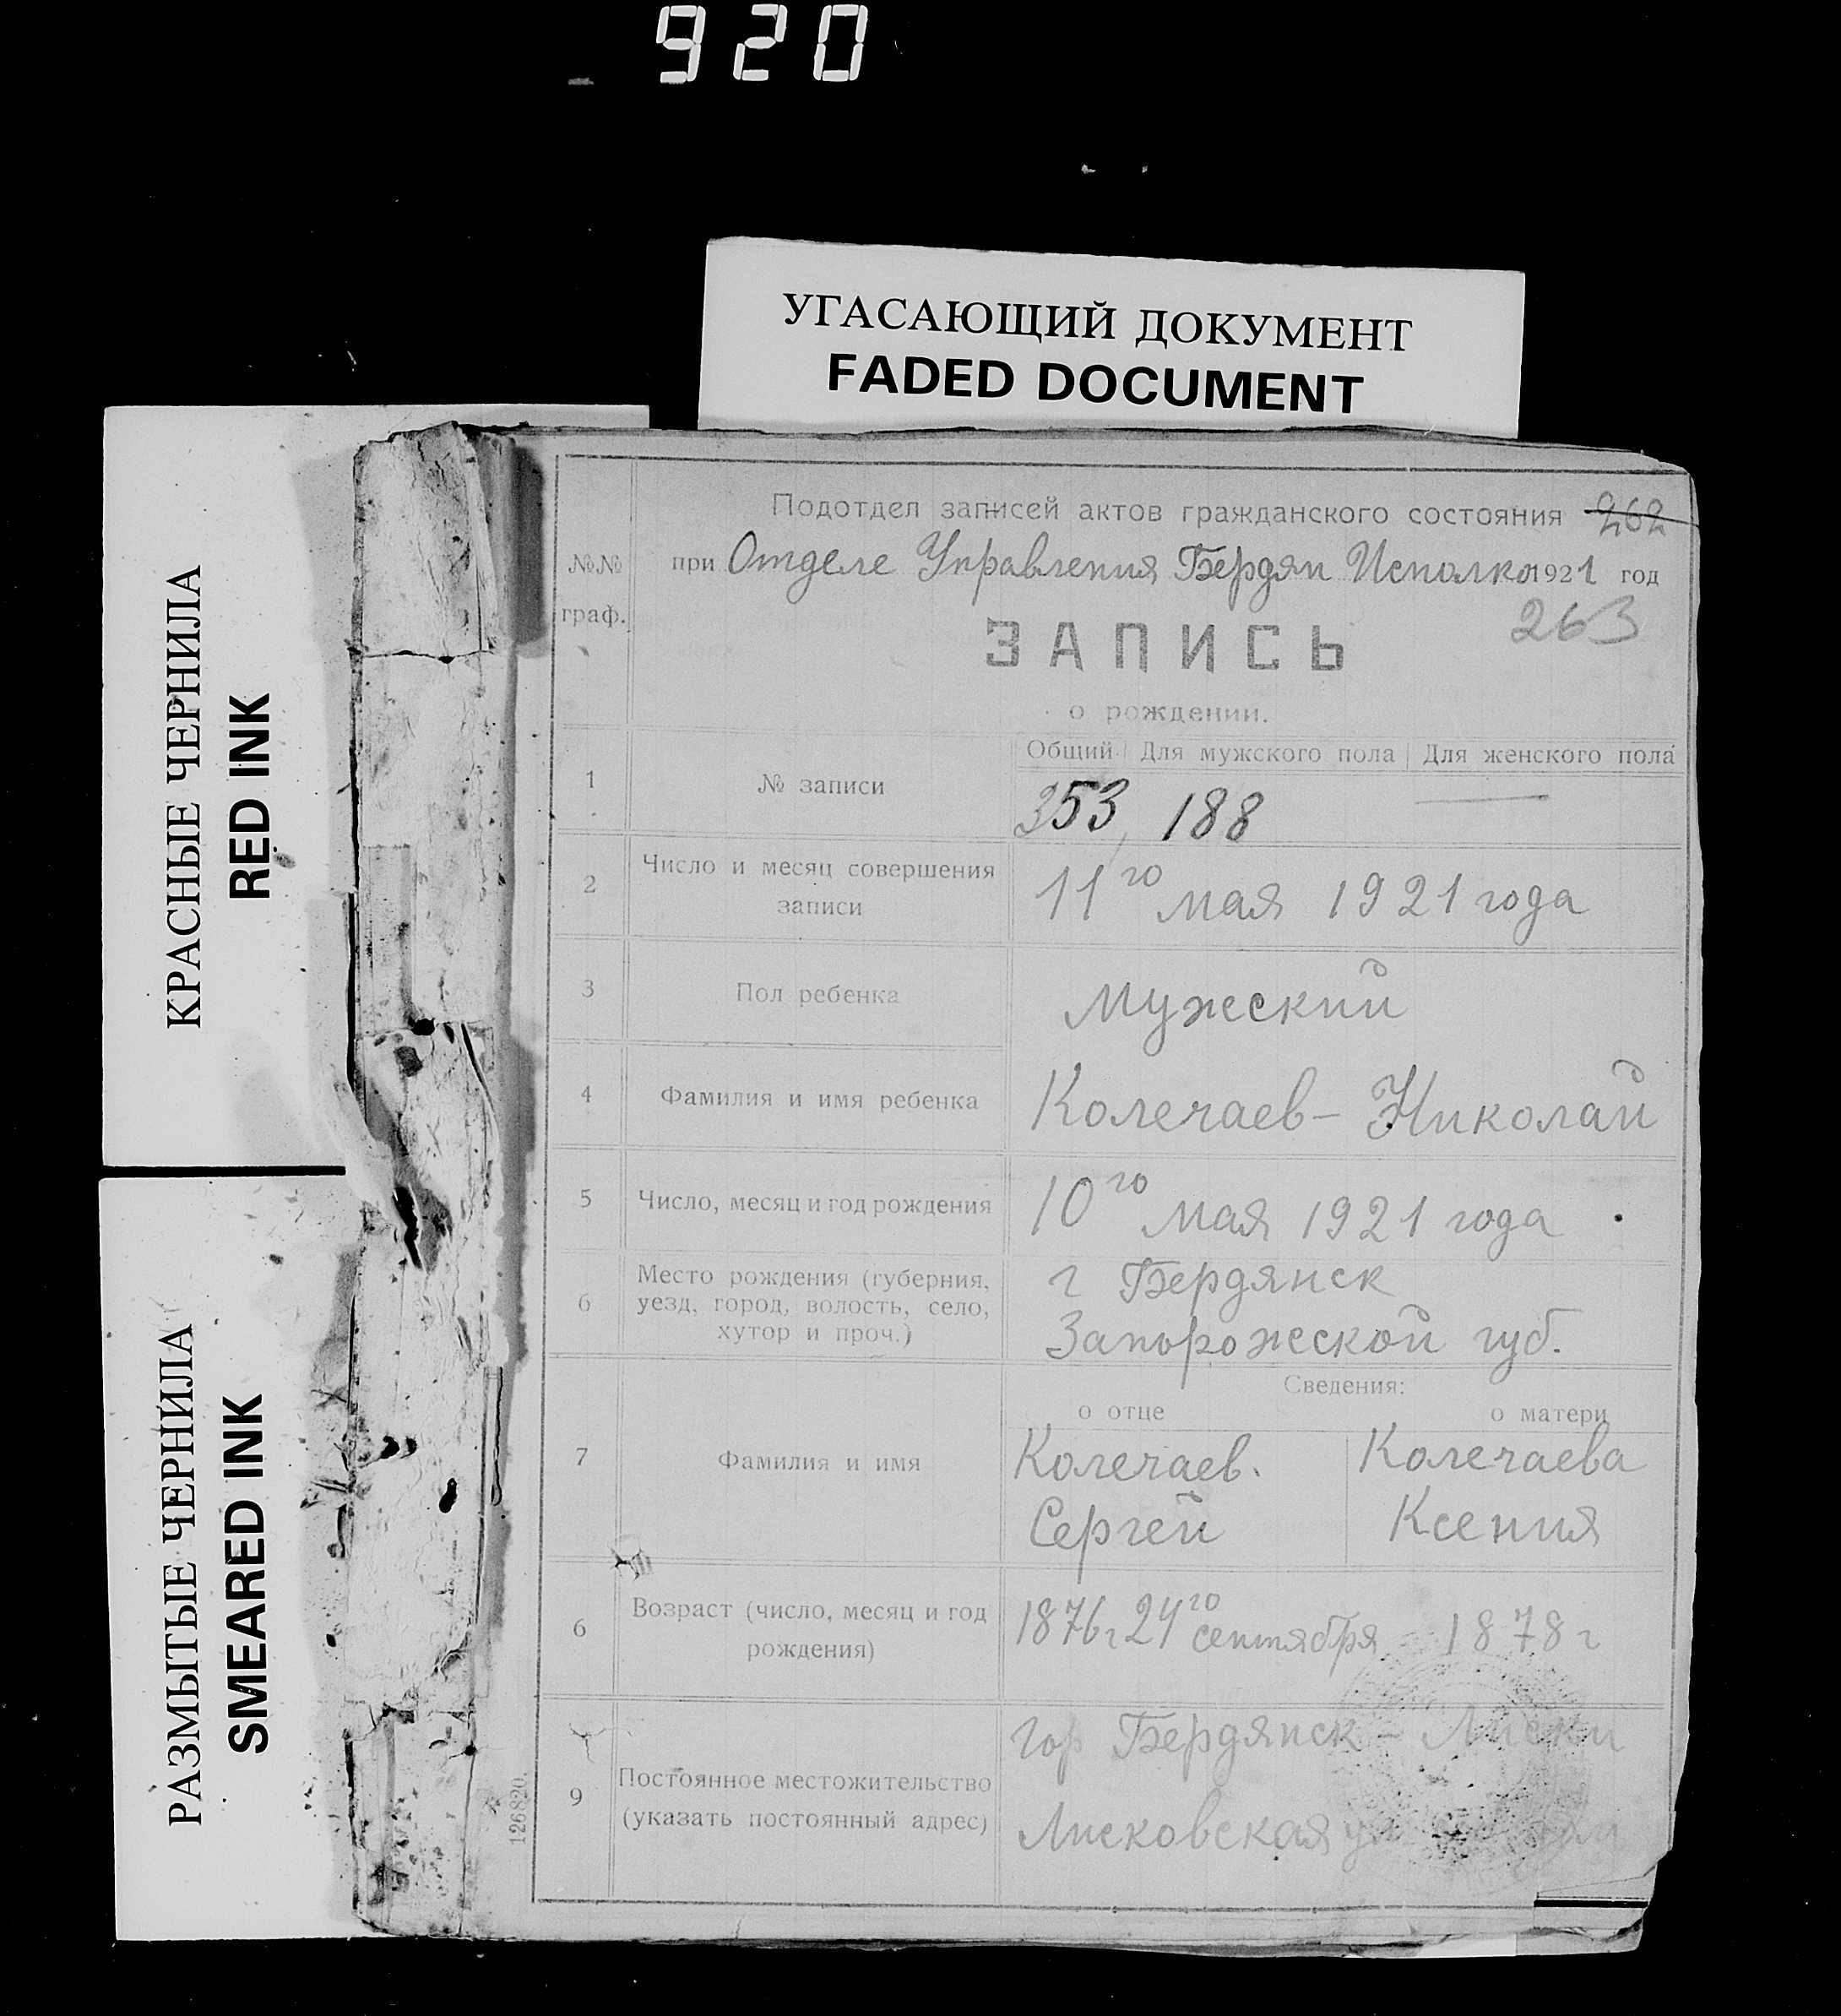 920
УГАСАЮЩИЙ ДОКУМЕНТ
FADED DOCUMENT
КРАСНЫЕ ЧЕРНИЛА
RED INK
РАЗМЫТЫЕ ЧЕРНИЛА
SMEARED INK
Подотдел записей актов гражданского состояния 262
№№ граф.
при Отделе Управления Бердян Исполко 1921 год
263
ЗАПИСЬ
о рождении.
Общий Для мужского пола Для женского пола
1 № записи 353 188 —
2 Число и месяц совершения
записи
11го мая 1921 года
3 Пол ребенка Мужеский
4 Фамилия и имя ребенка Колечаев - Николай
5 Число, месяц и год рождения 10го мая 1921 года
6 Место рождения (губерния,
уезд, город, волость, село,
хутор и проч.)
г Бердянск
Запорожеской губ.
Сведения:
о отце о матери
7 Фамилия и имя
Колечаев. Колечаева
Сергей Ксения
6 Возраст (число, месяц и год
рождения)
1876г 24го сентября 1878г
9 Постоянное местожительство
(указать постоянный адрес)
гор Бердянск - Лиски
Лисковская ул
126820.